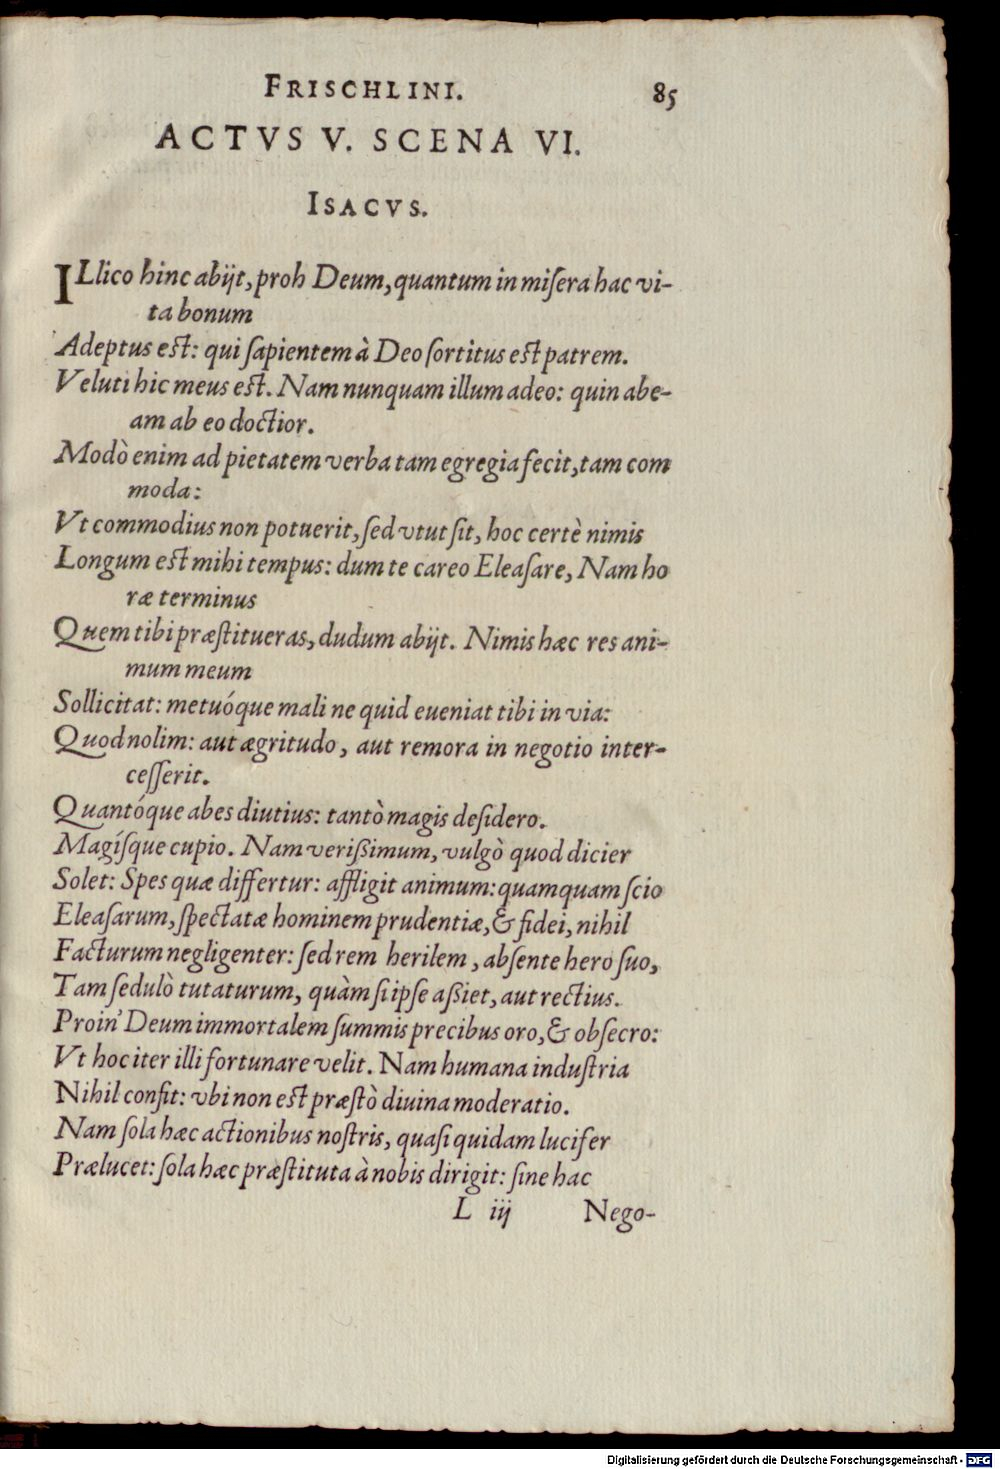 FRISCHLINI. 85
ACTVS V. SCENA VI.
ISACVS.
ILlico hinc abijt, proh Deum, quantum in misera hac vi-
ta bonum
Adeptus est: qui sapientem à Deo sortitus est patrem.
Veluti hic meus est. Nam nunquam illum adeo: quin abe-
am ab eo doctior.
Modò enim ad pietatem verba tam egregia fecit, tam com
moda:
Vt commodius non potuerit, sed vtut sit, hoc certè nimis
Longum est mihi tempus: dum te careo Eleasare, Nam ho
ræ terminus
Quem tibi præstitueras, dudum abijt. Nimis hæc res ani-
mum meum
Sollicitat: metuóque mali ne quid eueniat tibi in via:
Quod nolim: aut ægritudo, aut remora in negotio inter-
cesserit.
Quantóque abes diutius: tantò magis desidero.
Magísque cupio. Nam verißimum, vulgò quod dicier
Solet: Spes quæ differtur: affligit animum: quamquam scio
Eleasarum, spectatæ hominem prudentiæ, & fidei, nihil
Facturum negligenter: sed rem herilem, absente hero suo,
Tam sedulò tutaturum, quàm si ipse aßiet, aut rectius.
Proin' Deum immortalem summis precibus oro, & obsecro:
Vt hoc iter illi fortunare velit. Nam humana industria
Nihil confit: vbi non est præstò diuina moderatio.
Nam sola hæc actionibus nostris, quasi quidam lucifer
Prælucet: sola hæc præstituta à nobis dirigit: sine hac
L iij Nego-
Digitalisierung gefördert durch die Deutsche Forschungsgemeinschaft - DFG